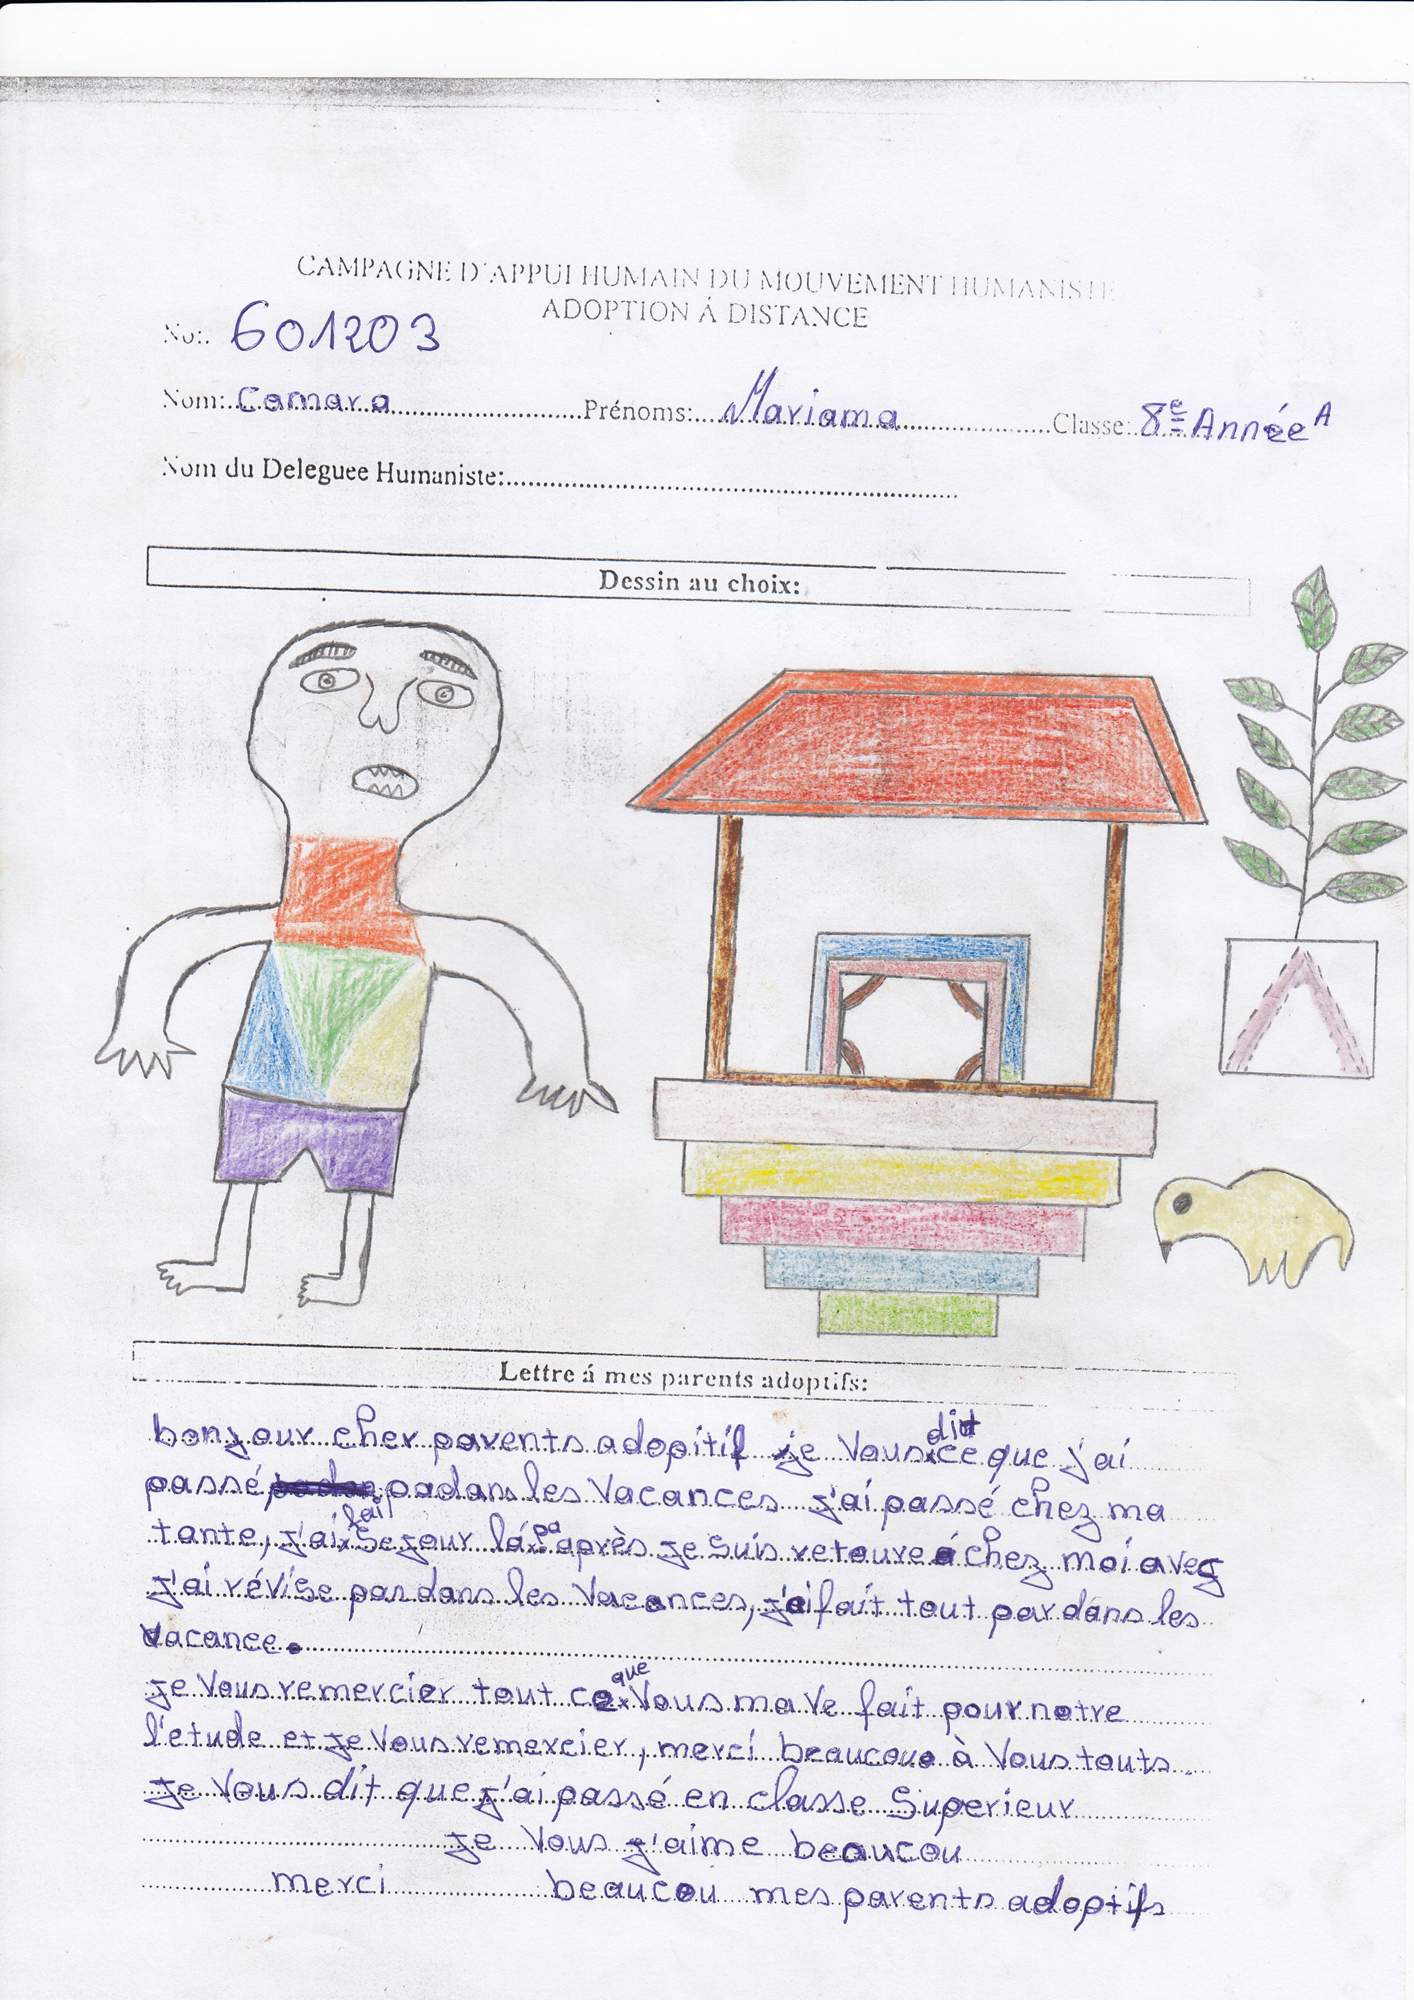 CAMPAGNE D'APPUI HUMAIN DU MOUVEMENT HUMANISTE
ADOPTION Á DISTANCE
No: 601203
Nom: Camara Prénoms: Mariama Classe: 8e Année A
Nom du Deleguee Humaniste:
Dessin au choix:
Lettre á mes parents adoptifs:
bonjour cher parents adopitif je Vous dit ce que j'ai
passé padans les Vacances j'ai passé chez ma
tante, j'ai fait Sejour lá pa après je suis retoure á chez moi aveg
j'ai révise par dans les Vacances, j'ai fait tout par dans les
vacance.
je Vous remercier tout ce que Vous ma Ve fait pour notre
l'etude et je Vous remercier, merci beaucou à Vous touts
Je Vous dit que j'ai passé en classe Superieur
je Vous j'aime beaucou
merci beaucou mes parents adoptifs